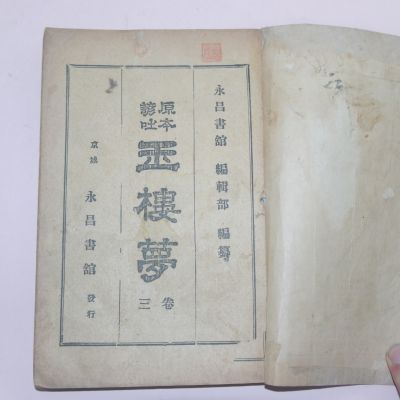 永昌書館 編輯部 編纂
原本
諺吐
玉樓夢
卷三
京城 永昌書館 發行